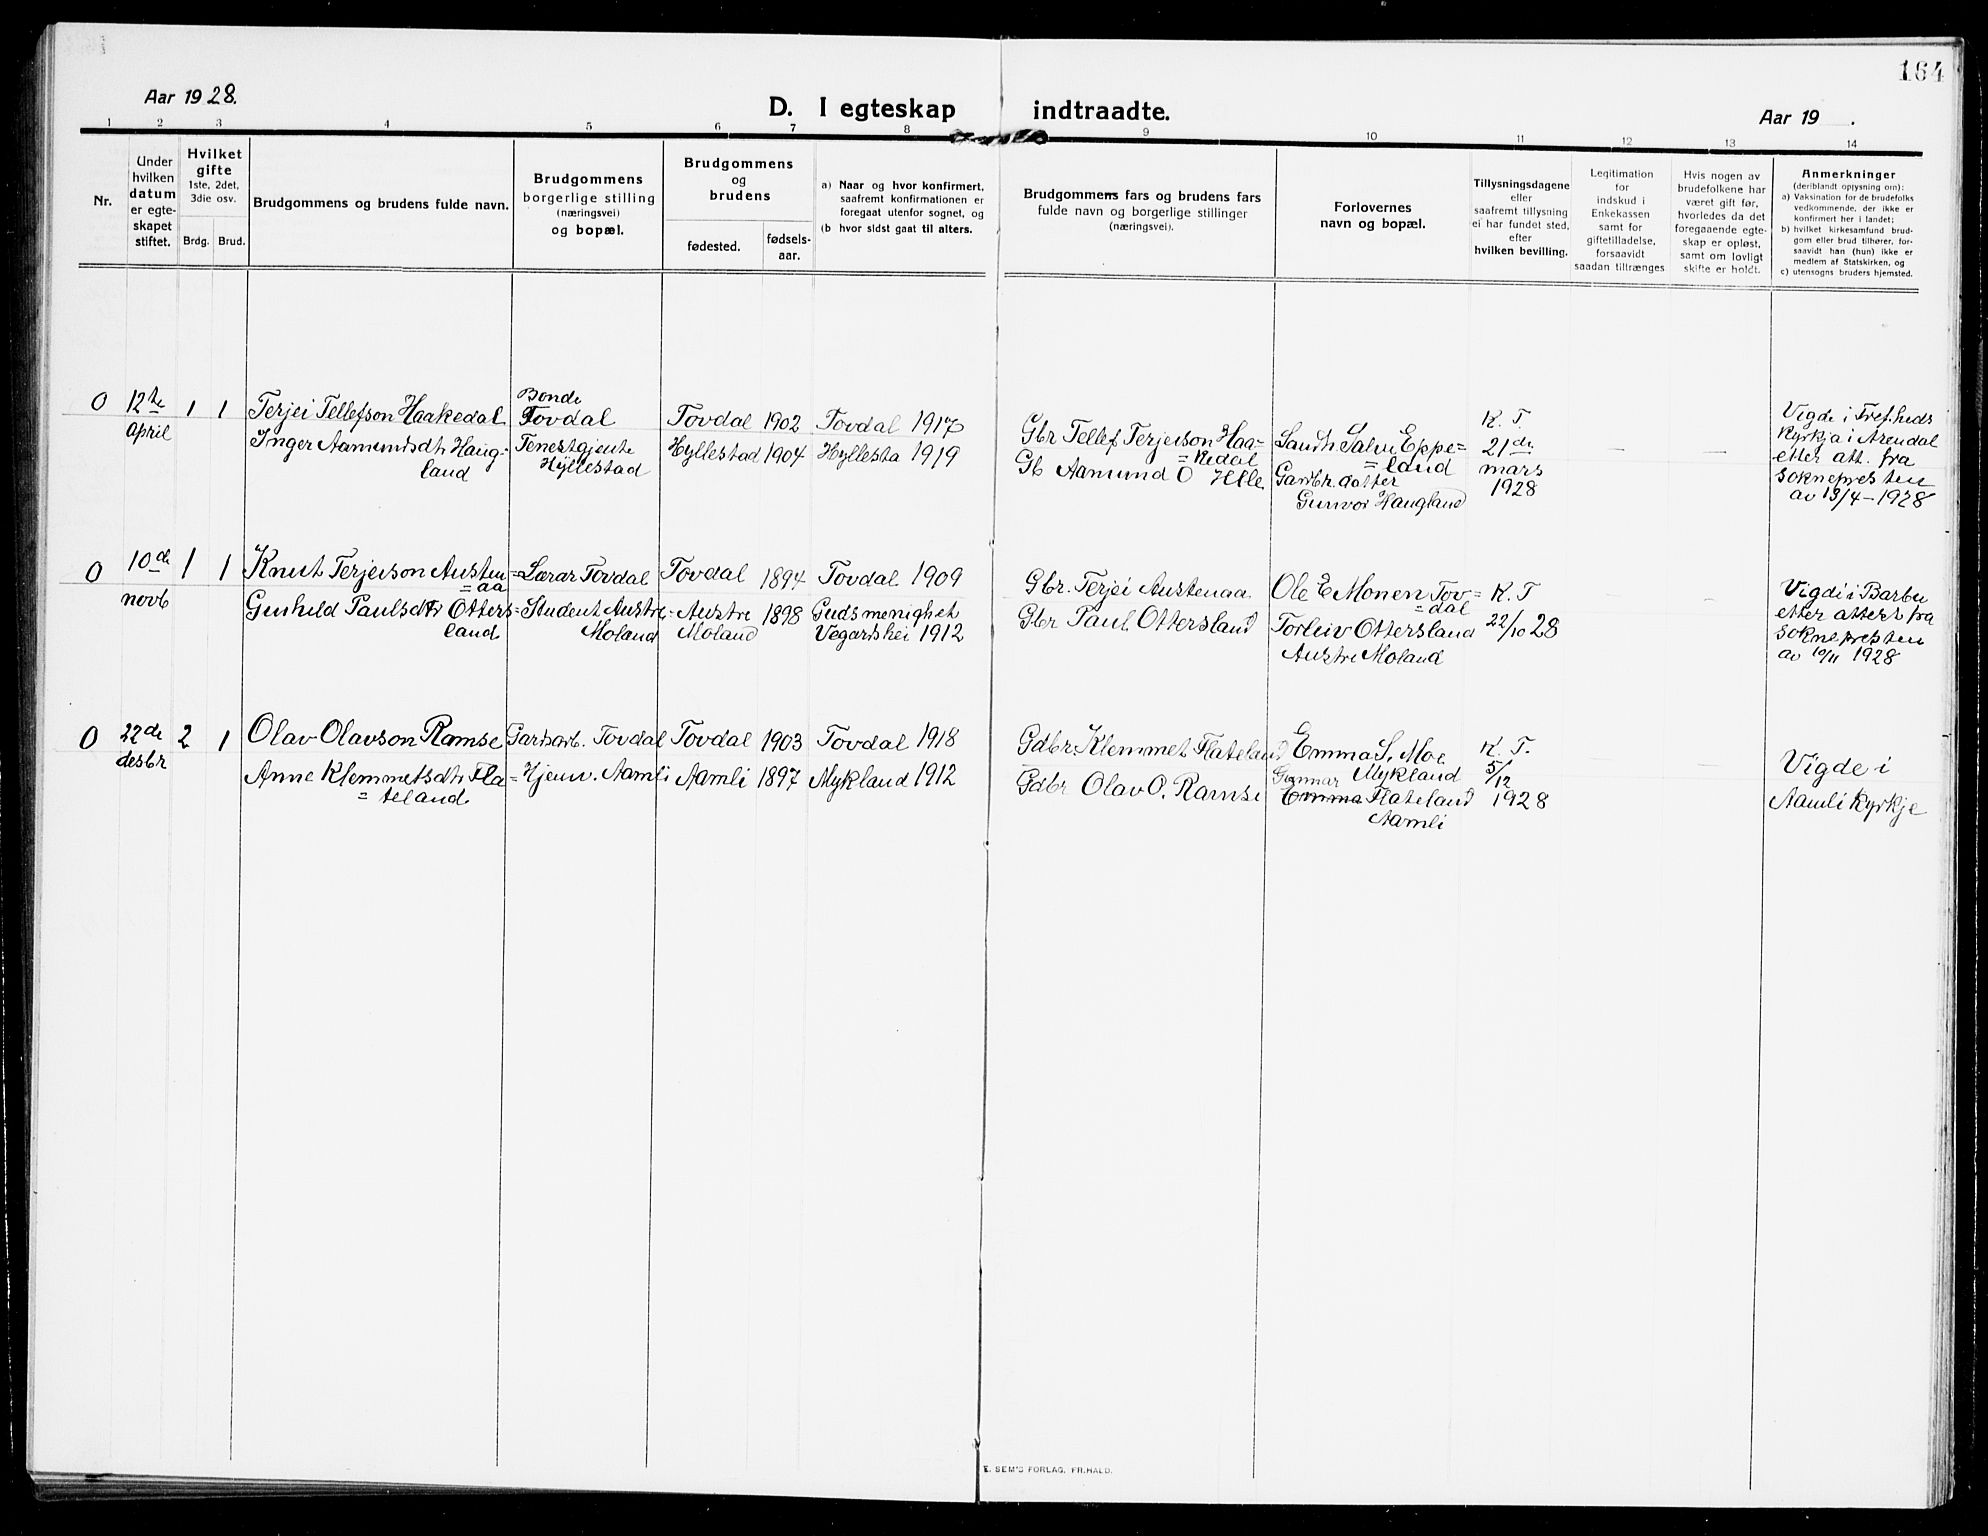 164
Aar 1928.
D. I egteskap indtraadte.
Aar 19 .
1 2 3 4 5 6 7 8 9 10 11 12 13 14
Nr.
Under
hvilken
datum
er egte-
skapet
stiftet.
Hvilket
gifte
1ste, 2det,
3die osv.
Brdg. Brud.
Brudgommens og brudens fulde navn.
Brudgommens
borgerlige stilling
(næringsvei)
og bopæl.
Brudgommens
og
brudens
fødested.
fødsels-
aar.
a) Naar og hvor konfirmert,
saafremt konfirmationen er
foregaat utenfor sognet, og
(b hvor sidst gaat til alters.
Brudgommens fars og brudens fars
fulde navn og borgerlige stillinger
(næringsvei).
Forlovernes
navn og bopæl.
Tillysningsdagene
eller
saafremt tillysning
ei har fundet sted,
efter
hvilken bevilling.
Legitimation
for
indskud i
Enkekassen
samt for
giftetilladelse,
forsaavidt
saadan tiltrænges
Hvis nogen av
brudefolkene har
været gift før,
hvorledes da det
foregaaende egte-
skap er opløst,
samt om lovligt
skifte er holdt.
Anmerkninger
(deriblandt oplysning om):
a) Vaksination for de brudefolks
vedkommende, der ikke er
konfirmert her i landet;
b) hvilket kirkesamfund brud-
gom eller brud tilhører, for-
saavidt han (hun) ikke er
medlem af Statskirken, og
c) utensogns bruders hjemsted.
0
12te
april
1 1
Terjei Tellefson Haakedal
Inger Aamundsdtr Haug-
land
Bonde
Tovdal
Tenestgjente
Hyllestad
Tovdal 1902
Hyllestad 1904
Tovdal 1917
Hyllesta 1919
Gbr Tellef Terjeison Haa=
=kedal
Gb Aamund O Helle
Sandn Salve Eppe=
=land
Gardbr. datter
Gunvor Haugland
K. T.
21de
mars
1928
— —
Vigde i Tref.heds
Kyrkja i Arendal
etter att. fra
soknepresten
av 13/4-1928
0
10de
novb
1 1
Knut Terjeison Austen=
=aa
Gunhild Paulsdtr Otters=
land
Lærar Tovdal
Student Austre
Moland
Tovdal 1894
Austre 1898
Moland
Tovdal 1909
Guds menighet
Vegardshei 1912
Gbr. Terjei Austenaa
Gbr Paul Ottersland
Ole E Monen Tov=
=dal
Torleiv Ottersland
Austre Moland
K. T
22/10 28
— —
Vigdi i Barbu
etter attert fra
soknepresten
av 10/11 1928
0
22de
desbr
2 1
Olav Olavson Ramse
Anne Klemmetsdtr Fla=
=teland
Gardsarb. Tovdal
Hjemv. Aamli
Tovdal 1903
Aamli 1897
Tovdal 1918
Mykland 1912
Gdbr. Klemmet Flateland
Gdbr Olav O. Ramse
Emma S. Moe
Mykland
Gunnar
Emma Flateland
Aamli
K. T.
5/12
1928
— —
Vigde i
Aamli Kyrkje
E. SEM'S FORLAG, FR.HALD.